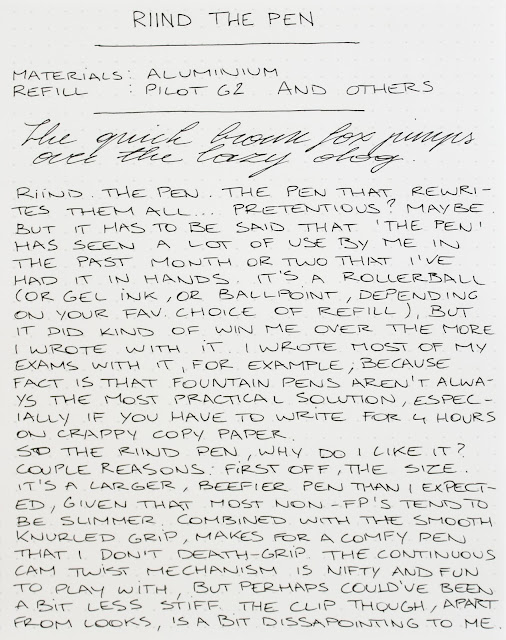 RIIND THE PEN
MATERIALS: ALUMINIUM
REFILL : PILOT G2 AND OTHERS
The quick brown fox jumps
over the lazy dog.
RIIND. THE PEN. THE PEN THAT REWRI-
TES THEM ALL... PRETENTIOUS? MAYBE.
BUT IT HAS TO BE SAID THAT 'THE PEN'
HAS SEEN A LOT OF USE BY ME IN
THE PAST MONTH OR TWO THAT I'VE
HAD IT IN HANDS. IT'S A ROLLERBALL
(OR GEL INK, OR BALLPOINT, DEPENDING
ON YOUR FAV. CHOICE OF REFILL), BUT
IT DID KIND OF WIN ME OVER THE MORE
I WROTE WITH IT. I WROTE MOST OF MY
EXAMS WITH IT, FOR EXAMPLE, BECAUSE
FACT IS THAT FOUNTAIN PENS AREN'T ALWA-
YS THE MOST PRACTICAL SOLUTION, ESPEC-
IALLY IF YOU HAVE TO WRITE FOR 4 HOURS
ON CRAPPY COPY PAPER.
SO THE RIIND PEN, WHY DO I LIKE IT?
COUPLE REASONS: FIRST OFF, THE SIZE.
IT'S A LARGER, BEEFIER PEN THAN I EXPECT-
ED, GIVEN THAT MOST NON-FP'S TEND TO
BE SLIMMER. COMBINED WITH THE SMOOTH
KNURLED GRIP, MAKES FOR A COMFY PEN
THAT I DON'T DEATH-GRIP. THE CONTINUOUS
CAM TWIST MECHANISM IS NIFTY AND FUN
TO PLAY WITH, BUT PERHAPS COULD'VE BEEN
A BIT LESS STIFF. THE CLIP THOUGH, APART
FROM LOOKS, IS A BIT DISSAPOINTING TO ME.